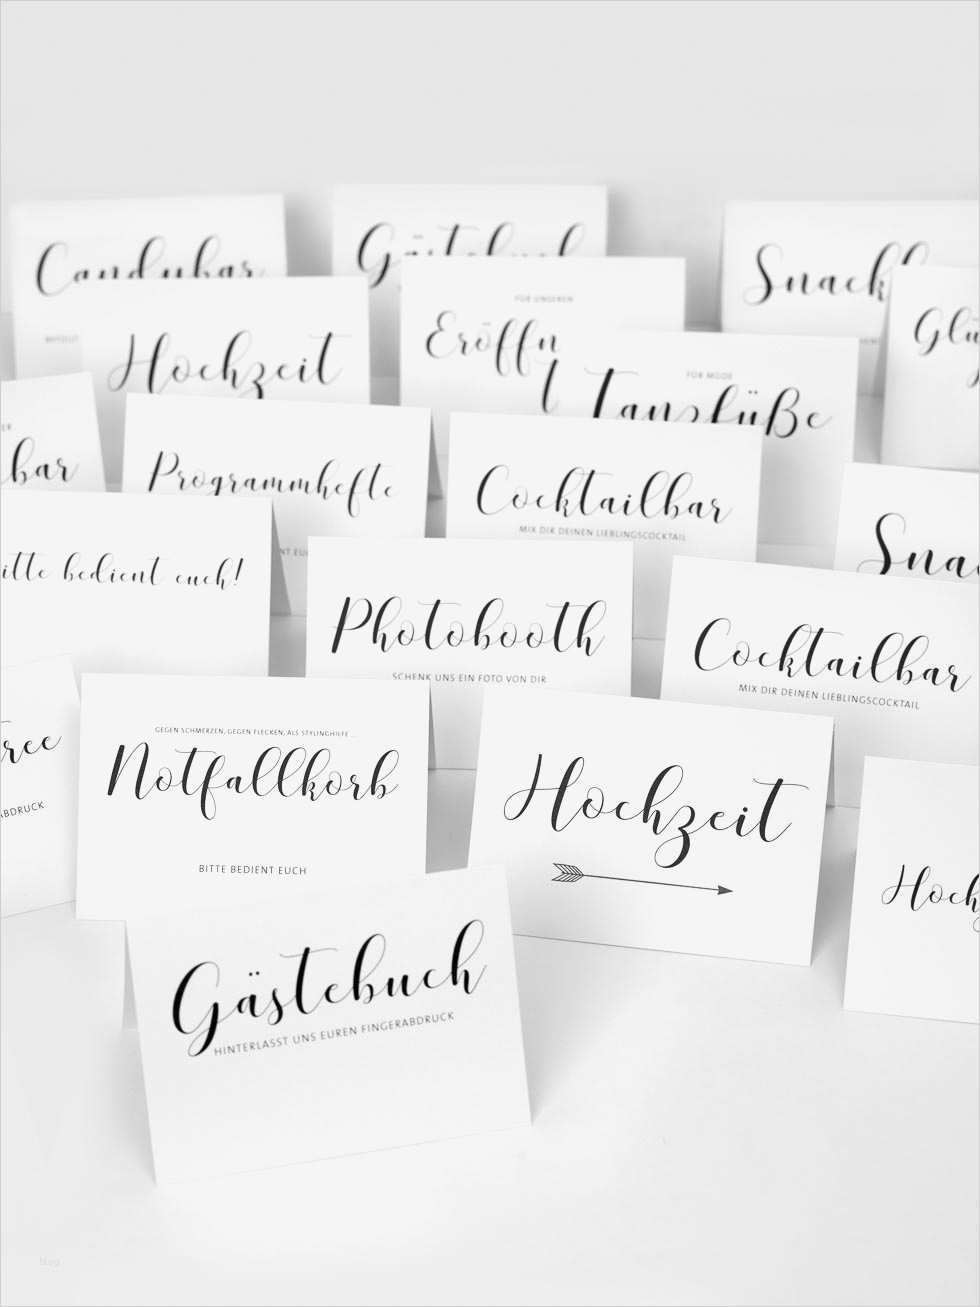 Candybar
Gästebuch
Snack
Hochzeit
FÜR UNSEREN
Eröffn
t
FÜR MÜDE
Tanzfüße
Glü
bar
Programmhefte
Cocktailbar
MIX DIR DEINEN LIEBLINGSCOCKTAIL
Snac
itte bedient euch!
NT EU
Photobooth
SCHENK UNS EIN FOTO VON DIR
Cocktailbar
MIX DIR DEINEN LIEBLINGSCOCKTAIL
ree
ABDRUCK
GEGEN SCHMERZEN, GEGEN FLECKEN, ALS STYLINGHILFE ...
Notfallkorb
BITTE BEDIENT EUCH
Hochzeit
Hoch
Gästebuch
HINTERLASST UNS EUREN FINGERABDRUCK
blog